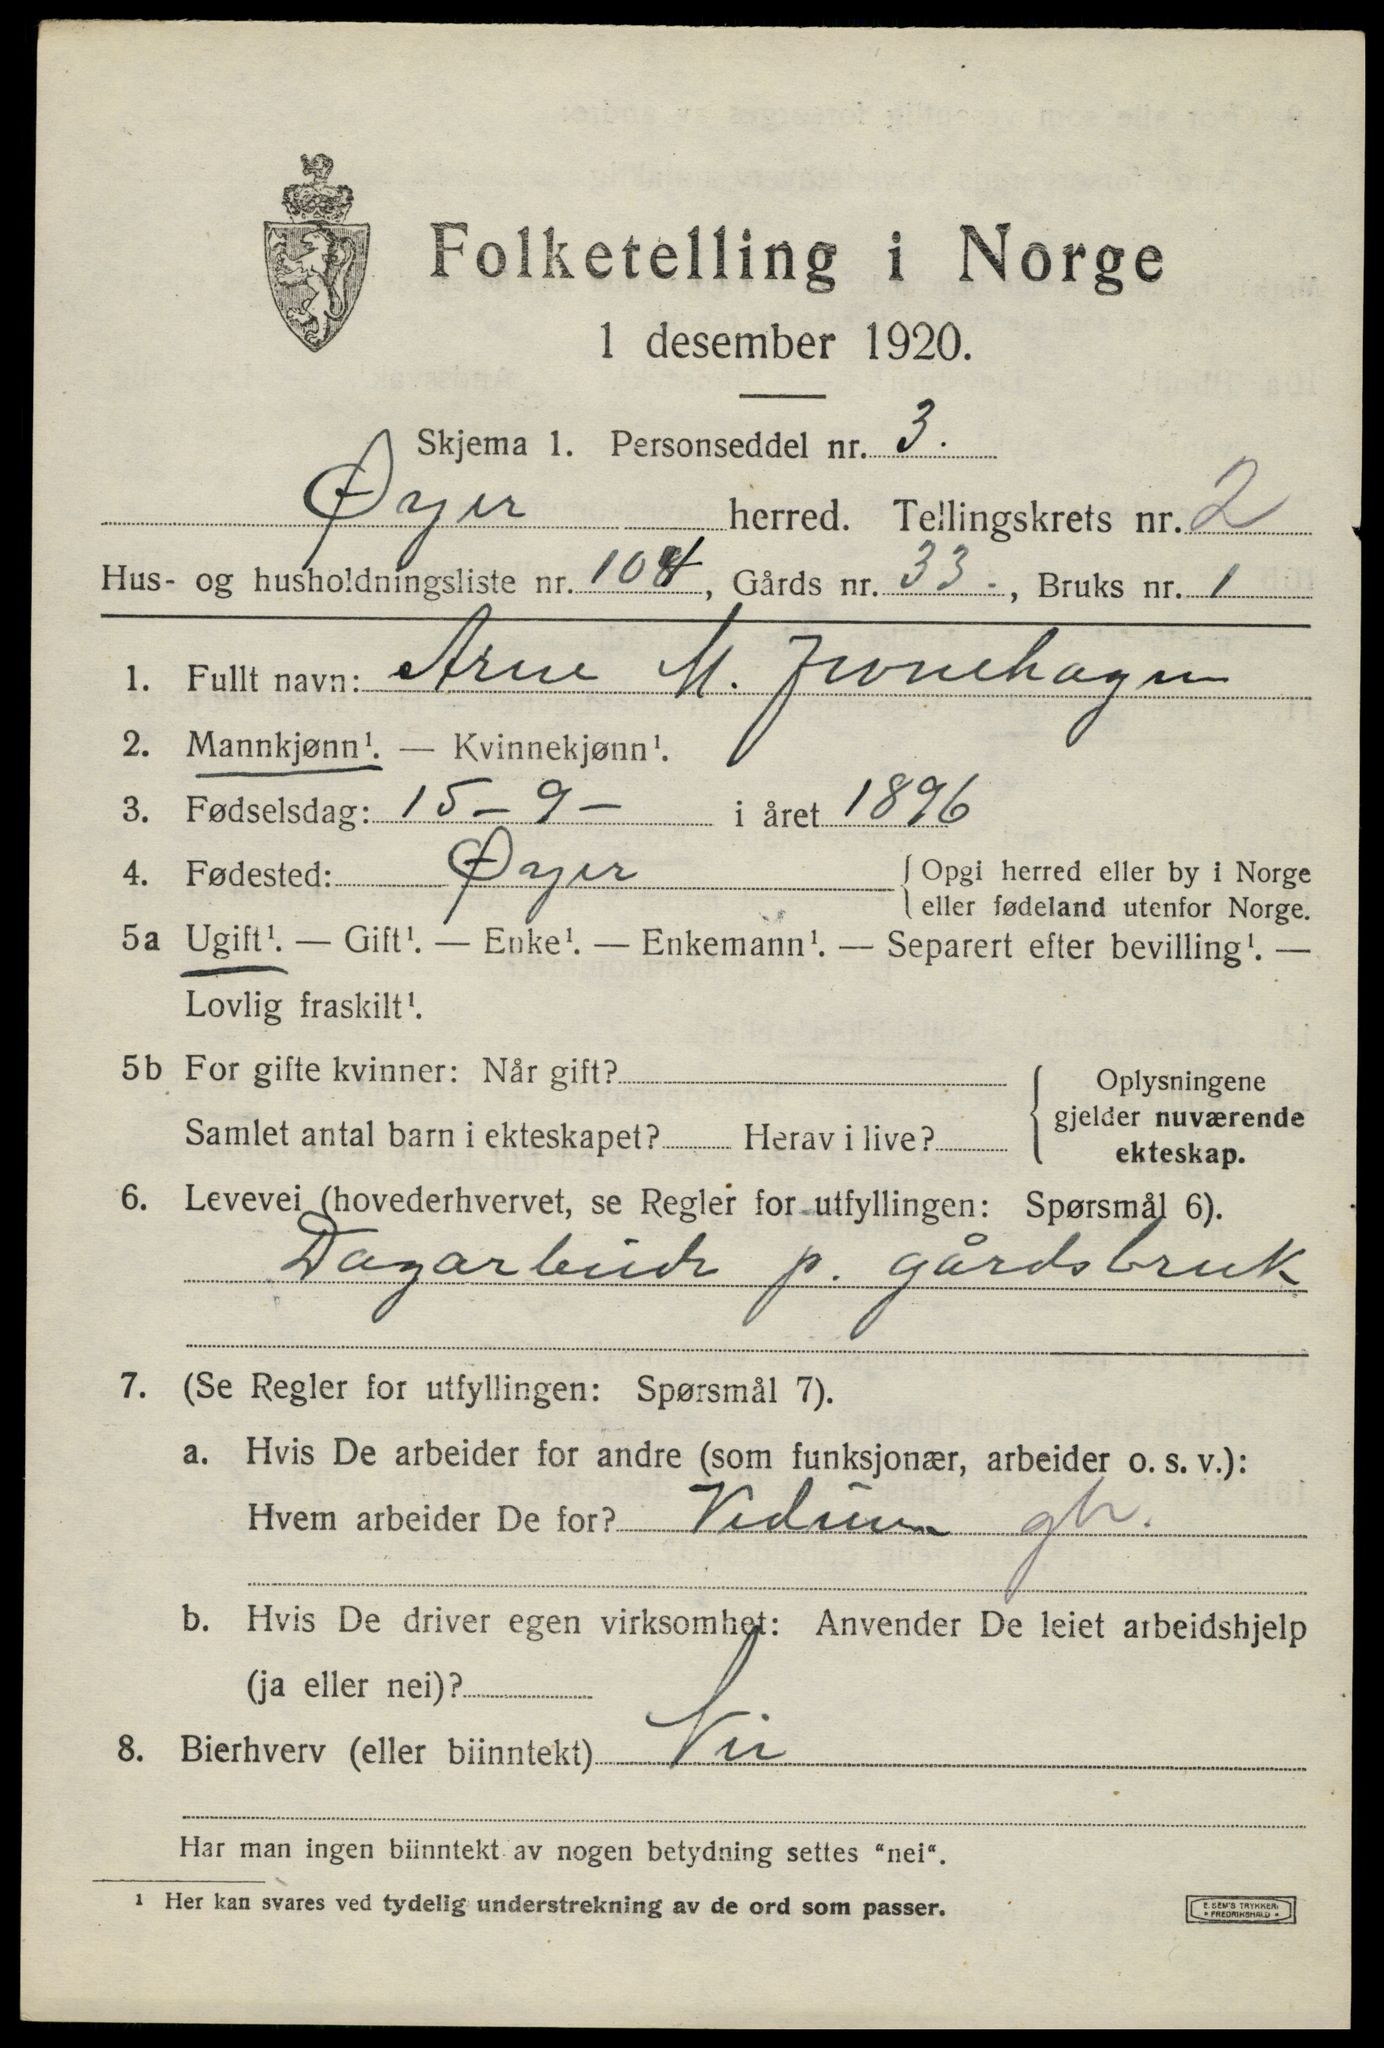 Folketelling i Norge
1 desember 1920.
Skjema 1. Personseddel nr. 3.
Øyer herred. Tellingskrets nr. 2
Hus- og husholdningsliste nr. 104, Gårds nr. 33-, Bruks nr. 1
1. Fullt navn: Arne M.
2. Mannkjønn¹. — Kvinnekjønn¹.
3. Fødselsdag: 15-9- i året 1896
4. Fødested: Øyer { Opgi herred eller by i Norge
eller fødeland utenfor Norge.
5a Ugift¹. — Gift¹. — Enke¹. — Enkemann¹. — Separert efter bevilling¹. —
Lovlig fraskilt¹.
5b For gifte kvinner: Når gift?
Samlet antal barn i ekteskapet? Herav i live?
{ Oplysningene
gjelder nuværende
ekteskap.
6. Levevei (hovederhvervet, se Regler for utfyllingen: Spørsmål 6).
Dagarbeide p. gårdsbruk
7. (Se Regler for utfyllingen: Spørsmål 7).
a. Hvis De arbeider for andre (som funksjonær, arbeider o. s. v.):
Hvem arbeider De for? gbr.
b. Hvis De driver egen virksomhet: Anvender De leiet arbeidshjelp
(ja eller nei)?
8. Bierhverv (eller biinntekt) Nei
Har man ingen biinntekt av nogen betydning settes "nei".
¹ Her kan svares ved tydelig understrekning av de ord som passer.
E. SEM'S TRYKKERI
FREDRIKSHALD